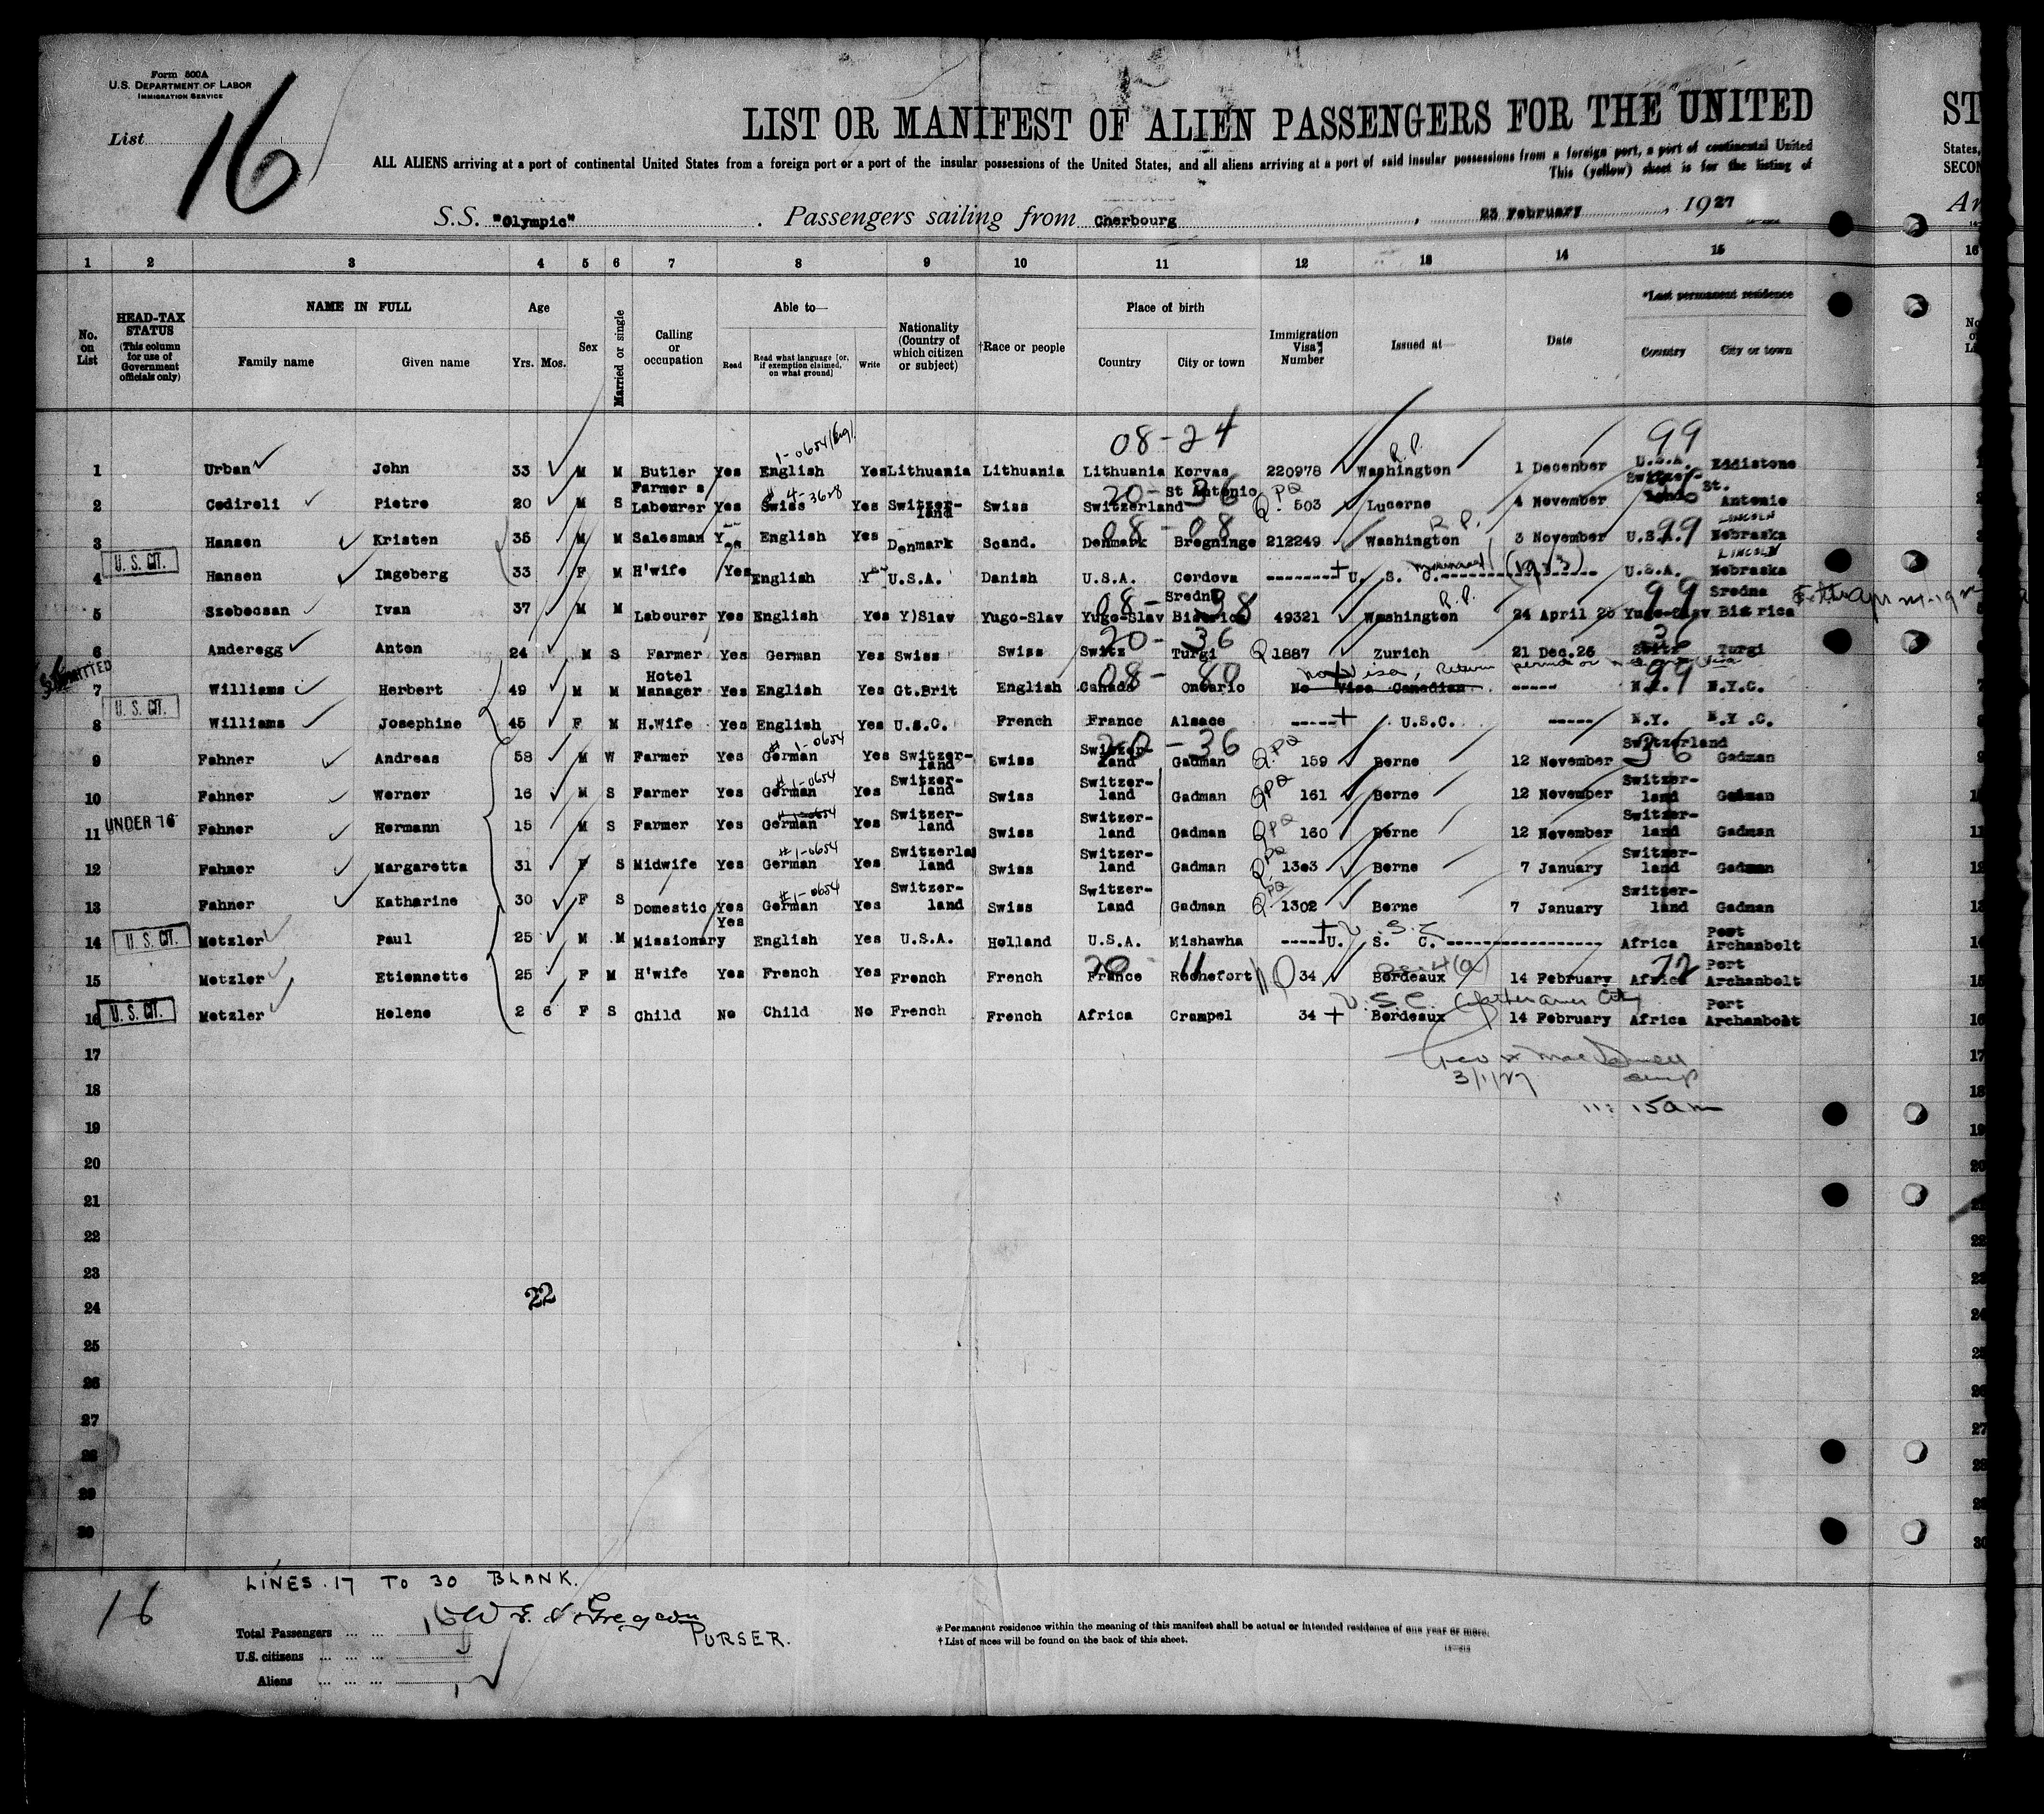 Form 500A
U.S. DEPARTMENT OF LABOR
IMMIGRATION SERVICE
List 16
LIST OR MANIFEST OF ALIEN PASSENGERS FOR THE UNITED ST
ALL ALIENS arriving at a port of continental United States from a foreign port or a port of the insular possessions of the United States, and all aliens arriving at a port of said insular possessions from a foreign port, a port of continental United States,
This (yellow) sheet is for the listing of SECON
S.S. "Olympic" . Passengers sailing from Cherbourg , 23 February , 1927 Ar
1 2 3 4 5 6 7 8 9 10 11 12 13 14 15 16
No. on List
HEAD-TAX STATUS (This column for use of Government officials only)
NAME IN FULL Family name Given name
Age Yrs. Mos.
Sex
Married or single
Calling or occupation
Able to— Read Read what language [or, if exemption claimed, on what ground] Write
Nationality (Country of which citizen or subject)
†Race or people
Place of birth Country City or town
Immigration Visa Number
Issued at—
Date
*Last permanent residence Country City or town
08-24 99
1-0654 (Eng) R.P.
1 Urban John 33 M M Butler Yes English Yes Lithuania Lithuania Lithuania Korvas 220978 Washington 1 December U.S.A. Eddistone
2 Cediroli Pietro 20 M S Farmer s Labourer Yes Swiss 4-3628 Yes Switzer-land Swiss Switzerland St Antonio 20-36 PQ 503 Lucerne 4 November Switzer-land St. Antonio
3 Hansen Kristen 35 M M Salesman Yes English Yes Denmark Scand. Denmark Bregninge 08-08 212249 R.P. Washington 3 November U.S.A. 99 LINCOLN Nebraska
U.S. CIT.
4 Hansen Ingeborg 33 F M H'wife Yes English Yes U.S.A. Danish U.S.A. Cordova -------- U. S. C. (1923) U.S.A. LINCOLN Nebraska
5 Szebecsan Ivan 37 M M Labourer Yes English Yes Y)Slav Yugo-Slav Yugo-Slav Sredna Bistrica 08-38 49321 R.P. Washington 24 April 26 Yugo-Slav 99 Sredna Bistrica
6 Anderegg Anton 24 M S Farmer Yes German Yes Swiss Swiss Switz Turgi 20-36 Q 1887 Zurich 21 Dec.26 Switz 36 Turgi
ADMITTED
7 Williams Herbert 49 M M Hotel Manager Yes English Yes Gt.Brit English Canada Ontario 08-80 No Visa Canadian no visa, Return permit or ----- N.Y. 99 N.Y.C.
U.S. CIT.
8 Williams Josephine 45 F M H.Wife Yes English Yes U.S.C. French France Alsace ----- U.S.C. ----- N.Y. N.Y.C.
9 Fahner Andreas 58 M W Farmer Yes German # 1-0654 Yes Switzer-land Swiss Switzer-land Gadman 20-36 Q PQ 159 Berne 12 November Switzerland 36 Gadman
10 Fahner Werner 16 M S Farmer Yes German # 1-0654 Yes Switzer-land Swiss Switzer-land Gadman QPQ 161 Berne 12 November Switzer-land Gadman
UNDER 16
11 Fahner Hermann 15 M S Farmer Yes German Yes Switzer-land Swiss Switzer-land Gadman QPQ 160 Berne 12 November Switzer-land Gadman
12 Fahner Margaretta 31 F S Midwife Yes German # 1-0654 Yes Switzerla Swiss Switzer-land Gadman QPQ 1303 Berne 7 January Switzer-land Gadman
13 Fahner Katharine 30 F S Domestic Yes German # 1-0654 Yes Switzer-land Swiss Switzer-Land Gadman QPQ 1302 Berne 7 January Switzer-land Gadman
14 U.S. CIT. Metzler Paul 25 M M Missionary Yes English Yes U.S.A. Holland U.S.A. Mishawha ----- U. S. C. ----------------- Africa Port Archanbolt
15 Metzler Etiennette 25 F M H'wife Yes French Yes French French France Rochefort 20-11 34 4(a) Bordeaux 14 February Africa 72 Port Archanbolt
16 U.S. CIT. Metzler Helene 2 6 F S Child No Child No French French Africa Crampel 34 U.S.C. Bordeaux 14 February Africa Port Archanbolt
17
3/1/27
18
11:15am
19
20
21
22
23
22
24
25
26
27
28
29
30
LINES. 17 TO 30 BLANK.
16
PURSER.
Total Passengers ... ...
U.S. citizens ... ... ...
Aliens ... ... ...
* Permanent residence within the meaning of this manifest shall be actual or intended residence of one year or more.
† List of races will be found on the back of this sheet.